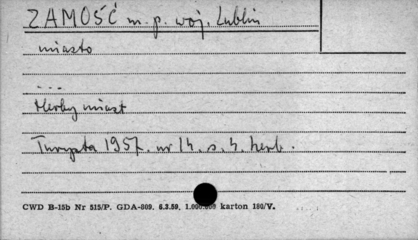 ZAMOŚĆ m. p. woj. Lublin
miasto
---
Herby miast
Turysta 1957. nr 14. s. 4. herb.
CWD B-15b Nr 515/P. GDA-809. 6.3.59. 1.000.000 karton 180/V.